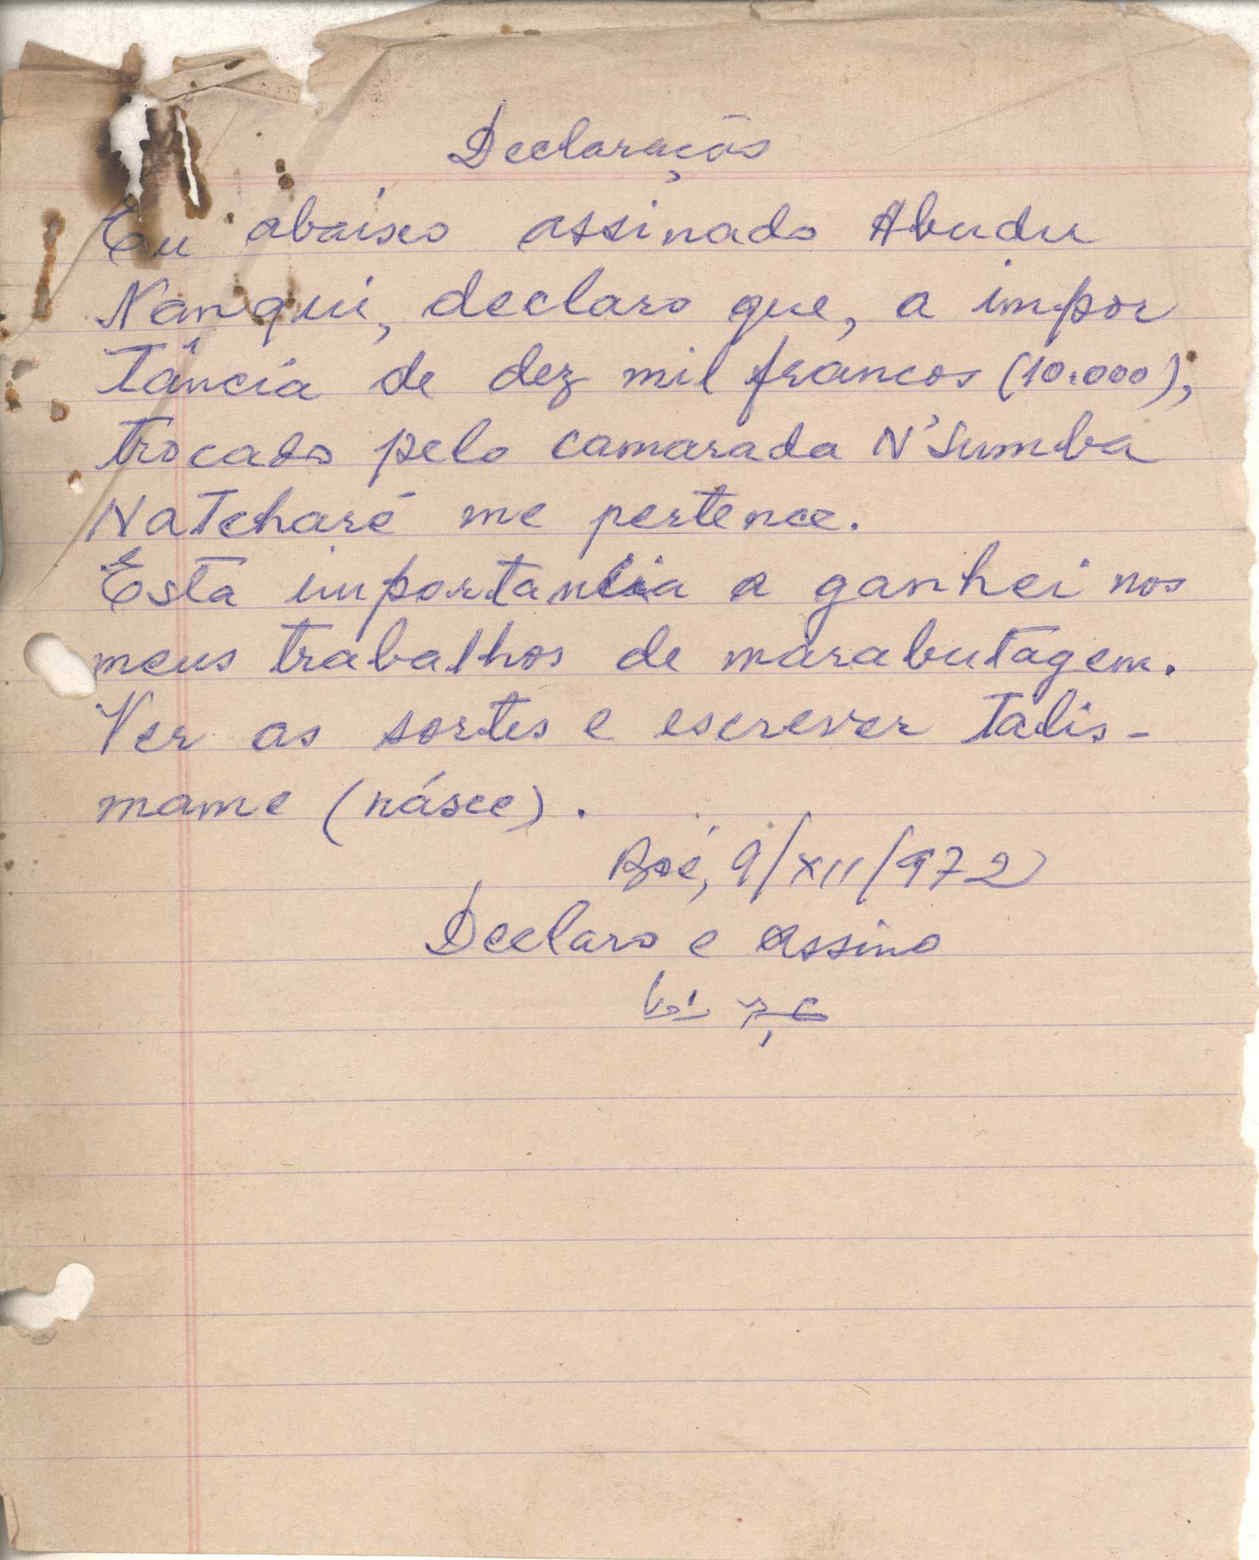 Declaração
Eu abaixo assinado Abudu
Nanqui, declaro que, a impor
tância de dez mil francos (10.000),
trocado pelo camarada N'Sumba
NaTcharé me pertence.
Esta importancia a ganhei nos
meus trabalhos de marabutagem.
Ver as sortes e escrever talis-
mame (násce).
Boé, 9/XII/972
Declaro e assino